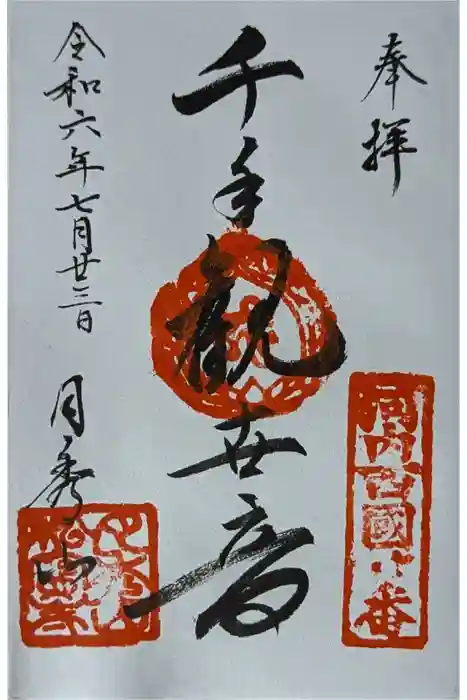 奉拝
河内西國八番
千手観世音
令和六年七月廿三日
月秀山